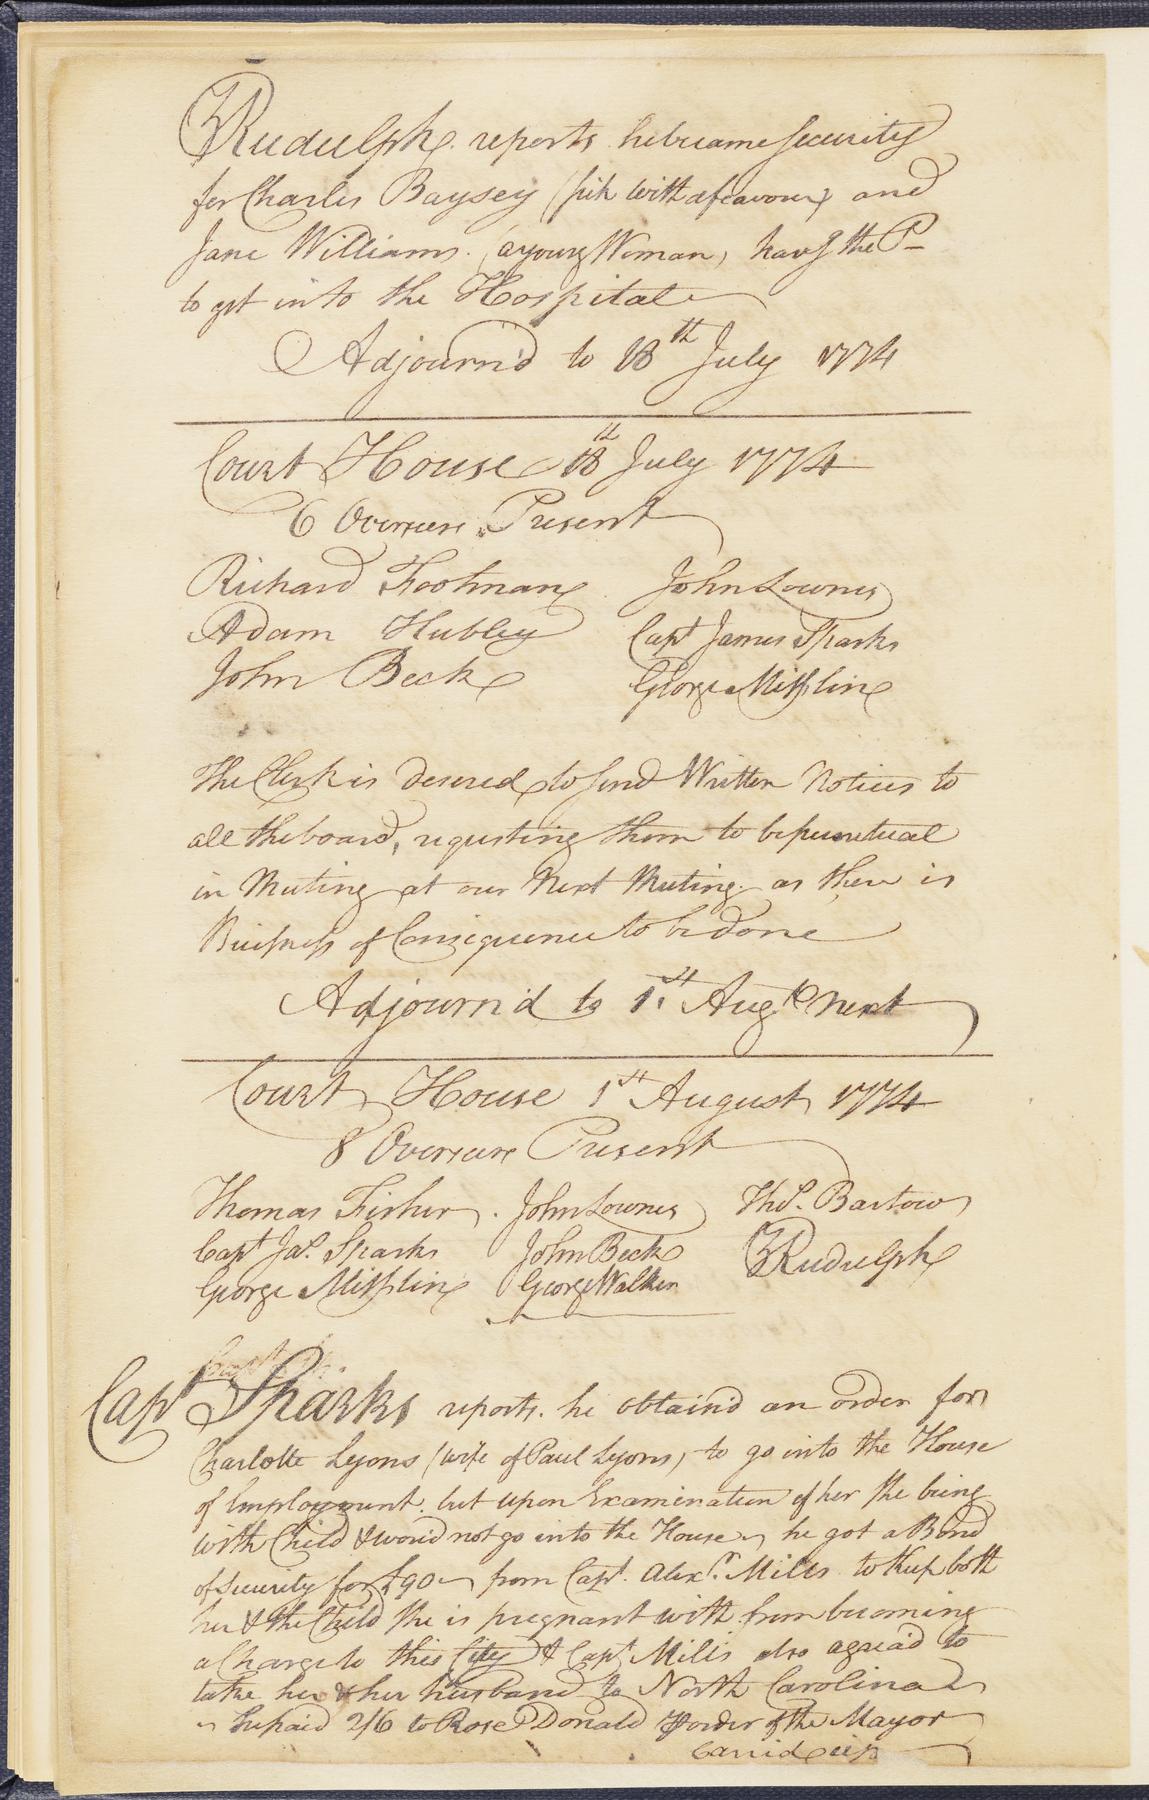 T Rudulph reports he became Security
for Charles Baysey (sick with a feavour) and
Jane Williams (a young Woman) havg the P—
to get into the Hospital
Adjourn'd to 18th July 1774
Court House 18th July 1774
6 Overseers Present
Richard Footman John Lownes
Adam Hubley Capt James Sparks
John Beck George Mifflin
The Clerk is desered to send Written Notices to
all the board, requsting them to be punctual
in Meeting at our Next Meeting as there is
Buisness of Consequence to be done
Adjourn'd to 1st Augt next
Court House 1st August 1774
8 Overseers Present
Thomas Fisher John Lownes Thos. Bartow
Capt Jas. Sparks John Beck T Rudulph
George Mifflin George Walker
Capt Sparks reports he obtain'd an order for
Charlotte Lyons (wife of Paul Lyons) to go into the House
of Employment but upon Examination of her She being
with Child & would not go into the House he got a Bond
of Security for £90 from Capt. Alexr. Mills to keep both
her & the Child She is pregnant with from becoming
a Charge to this City & Capt Mills also agreed to
take her & her husband to North Carolina
He paid 2/6 to Rose Donald order of the Mayor
Carried up